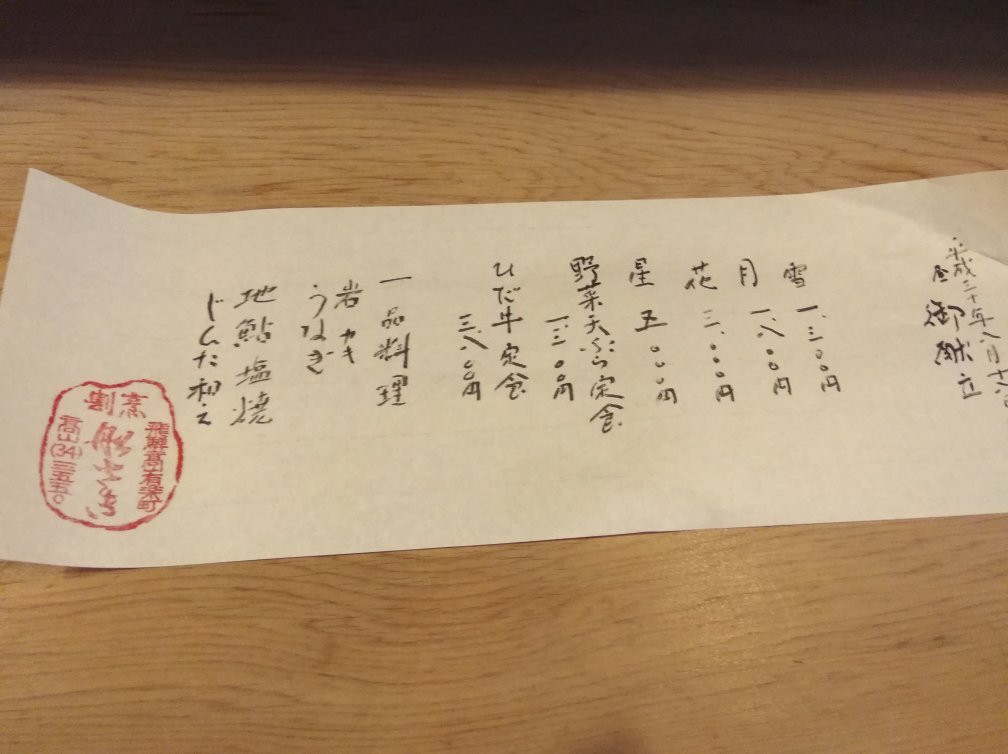 平成三十年八月十六
昼 御献立
雪 一、三〇〇円
月 一、八〇〇円
花 三、〇〇〇円
星 五、〇〇〇円
野菜天ぷら定食
一、三〇〇円
ひだ牛定食
三、八〇〇円
一品料理
岩カキ
うなぎ
地鮎塩焼
じんだ和え
割烹
飛騨高山有楽町
高山(34)三五五〇